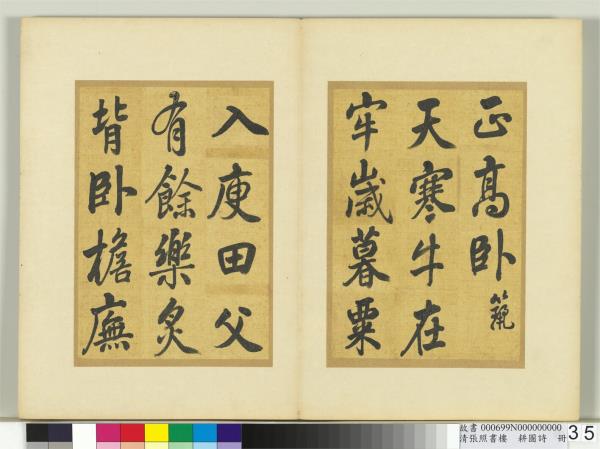 正高卧
天寒牛在
牢歲暮粟
入庾田父
有餘樂炙
背卧檐廡
故書 000699N000000000
清張照書樓　耕圖詩　冊
35